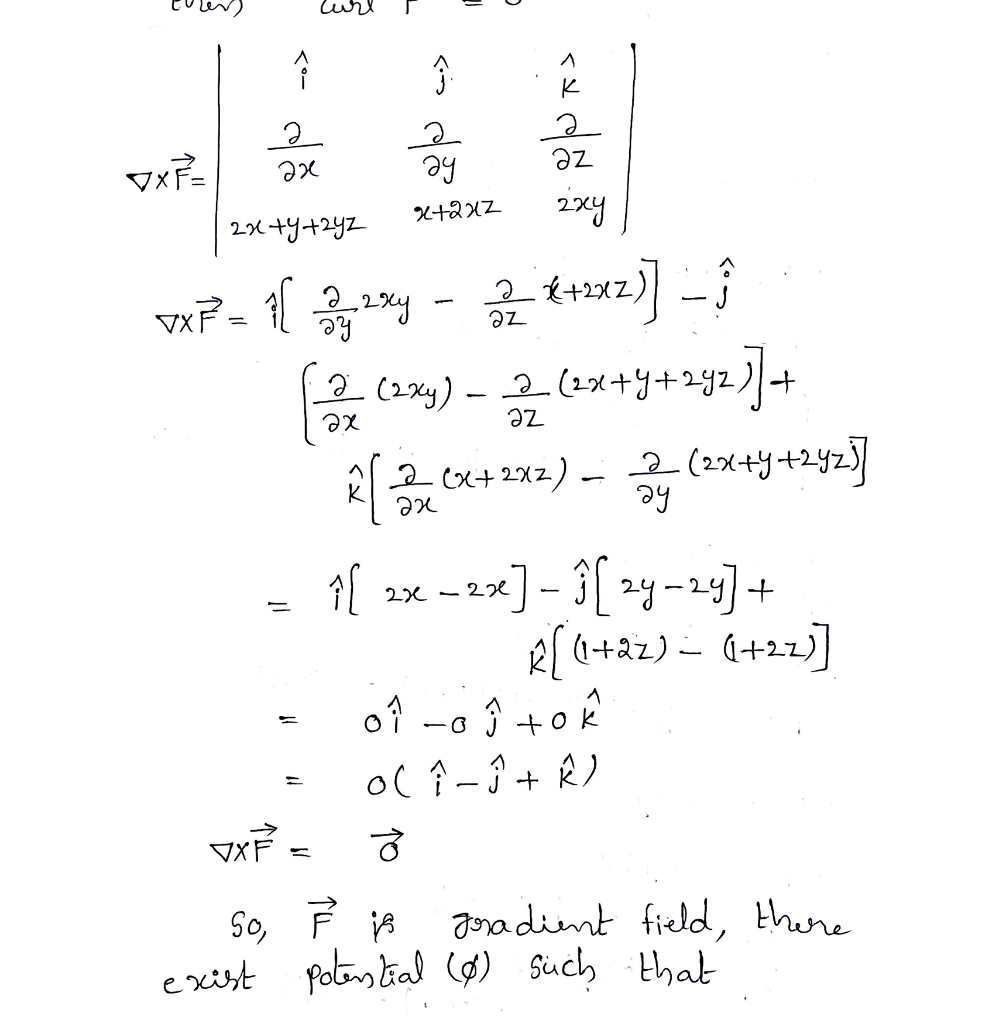 curl F = 0
î ĵ k̂
∂/∂x ∂/∂y ∂/∂z
∇×F⃗=
2x+y+2yz x+2xz 2xy
∇×F⃗ = î[ ∂/∂y 2xy - ∂/∂z x+2xz)] - ĵ
[∂/∂x (2xy) - ∂/∂z (2x+y+2yz)]+
k̂[∂/∂x (x+2xz) - ∂/∂y (2x+y+2yz)]
= î[ 2x - 2x] - ĵ[ 2y-2y] +
k̂[(1+2z) - (1+2z)]
= 0î -0ĵ +0k̂
= 0( î - ĵ + k̂)
∇×F⃗ = 0⃗
So, F⃗ is gradient field, there
exist potential (ø) such that